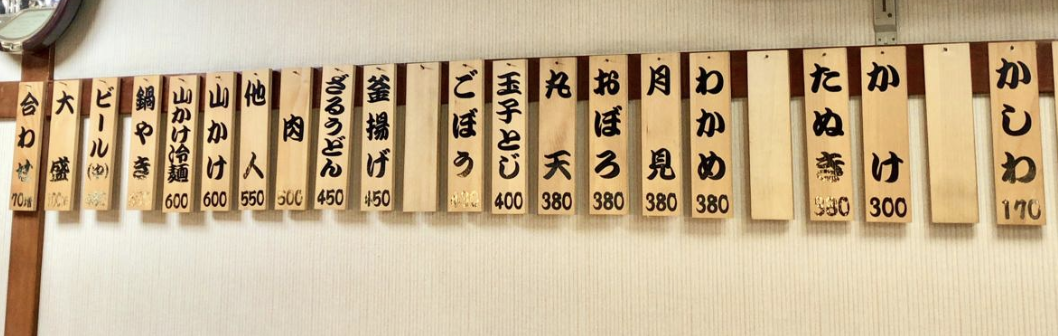 かしわ 170
かけ 300
たぬき
わかめ 380
月見 380
おぼろ 380
丸天 380
玉子とじ 400
ごぼう
釜揚げ 450
ざるうどん 450
肉 500
他人 550
山かけ 600
山かけ冷麺 600
鍋やき
ビール(中)
大盛
合わせ